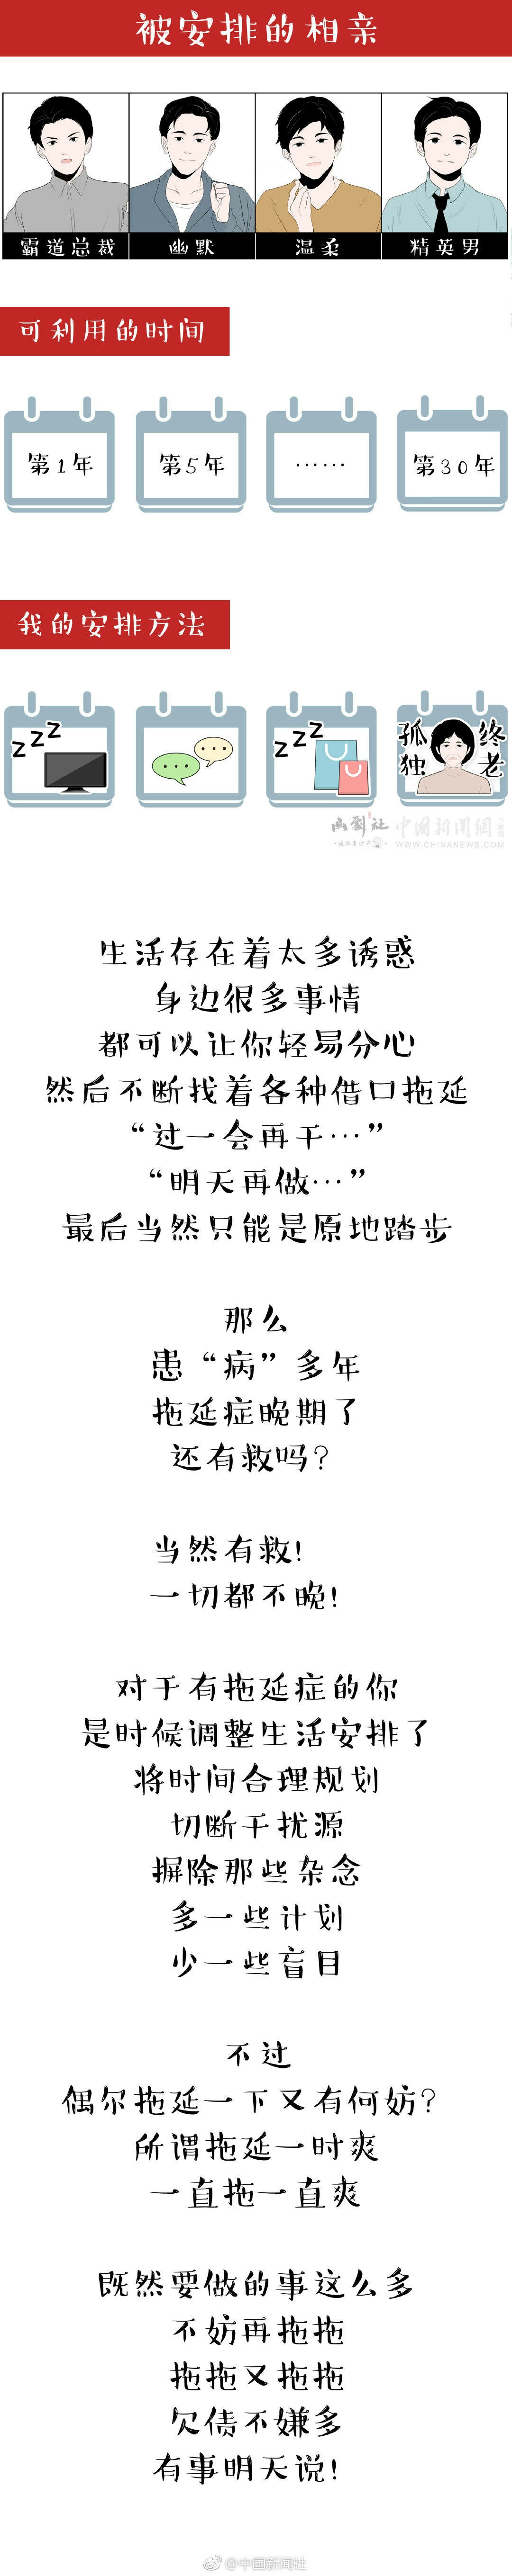 被安排的相亲
霸道总裁
幽默
温柔
精英男
可利用的时间
第1年
第5年
……
第30年
我的安排方法
zzz
zzz
孤独
终老
中國新聞網
WWW.CHINANEWS.COM
生活存在着太多诱惑
身边很多事情
都可以让你轻易分心
然后不断找着各种借口拖延
“过一会再干…”
“明天再做…”
最后当然只能是原地踏步
那么
患“病”多年
拖延症晚期了
还有救吗?
当然有救!
一切都不晚!
对于有拖延症的你
是时候调整生活安排了
将时间合理规划
切断干扰源
摒除那些杂念
多一些计划
少一些盲目
不过
偶尔拖延一下又有何妨?
所谓拖延一时爽
一直拖一直爽
既然要做的事这么多
不妨再拖拖
拖拖又拖拖
欠债不嫌多
有事明天说!
@中国新闻社